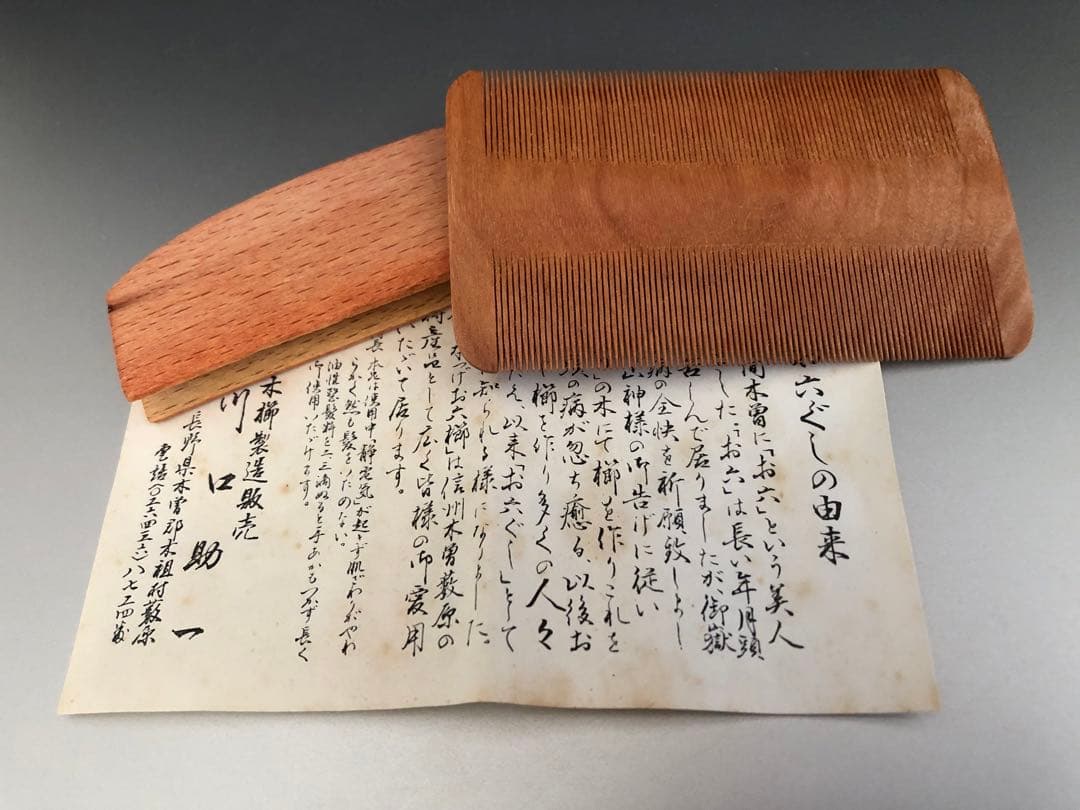 六ぐしの由来
間木曽に「お六」という美人
した「お六」は長い年月頭
しんで居りましたが、御嶽
病の全快を祈願致しまし
山神様の御告げに従い
の木にて櫛を作りこれを
頭の病が忽ち癒る、以後お
櫛を作り多くの人々
以来「お六ぐし」として
知られる様になりました。
お六櫛」は信州木曽薮原の
村産品として広く皆様の御愛用
いただいて居ります。
は使用中「静電気」が起らず肌ざわりがやわ
らかく然も髪をいためない。
油性整髪料を二三滴ぬると手あかもつかず長く
御使用いただけます。
木櫛製造販売
川口助一
長野県木曽郡木祖村薮原
電話(〇二六四三六)八七二四番